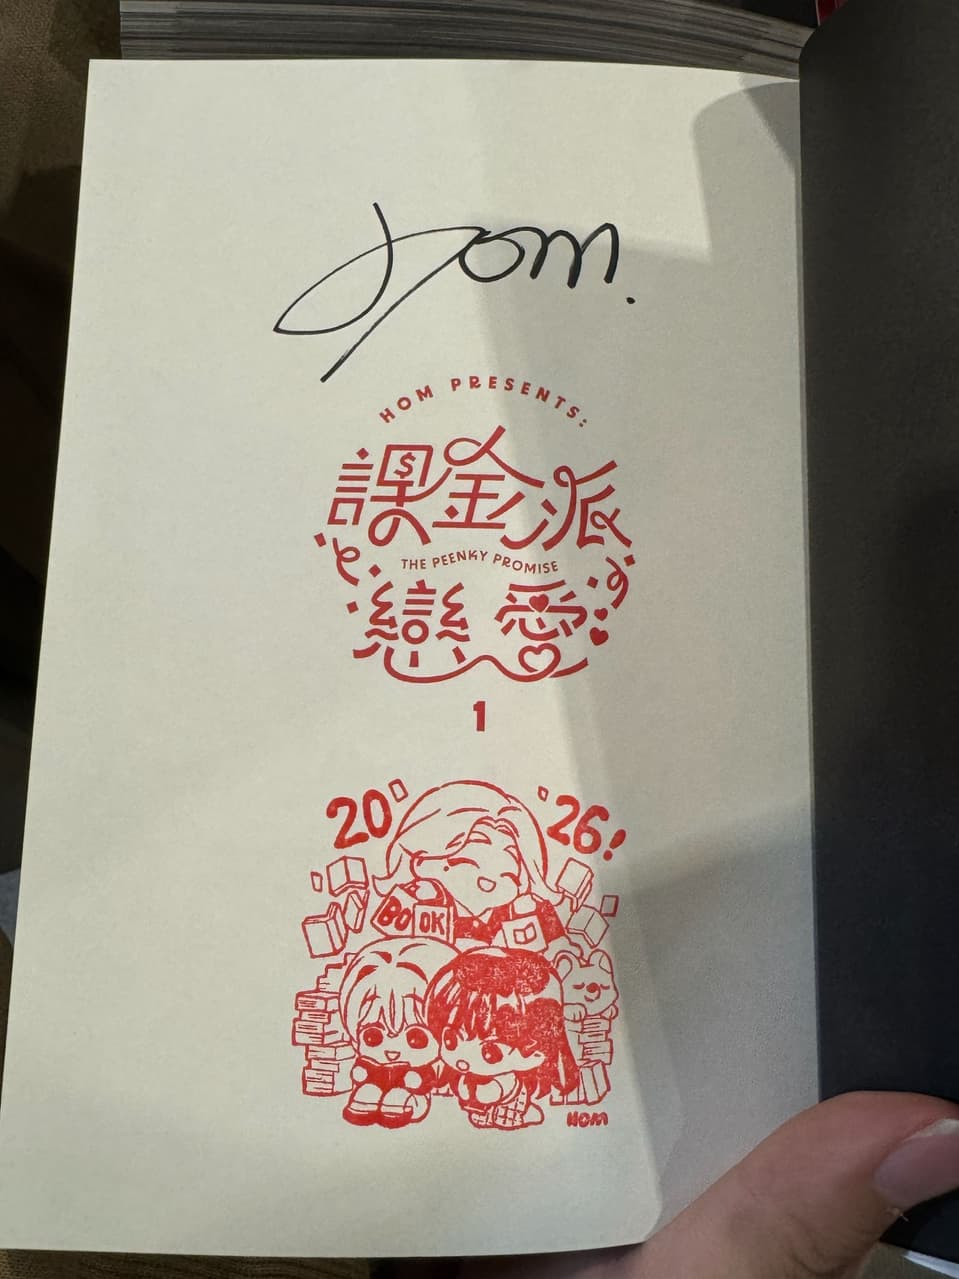 Hom.
HOM PRESENTS:
課金派
THE PEENKY PROMISE
戀愛
1
2026!
BOOK
HOM